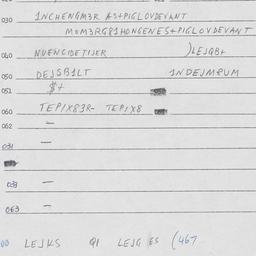 030 1NCHENGM3R AS+PIGLOVDEVANT
MOM3RG81HONGENES+PIGLOVDEVANT
040 NUENGIBETIJER )LEJGB+
050 DEJSB1LT 1NDEJMPUM
051 $+
060 TEPIX83R- TEPIX8
062 —
031 —
039 —
063 —
LEJKS 91 LEJG ES (467